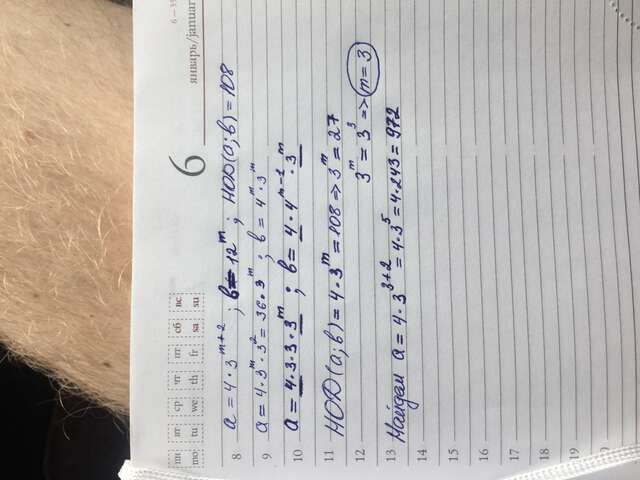 пн вт ср чт пт сб вс
mo tu we th fr sa su
6
6 – 35
январь/januar
8 a = 4 · 3^{m+2} ; b = 12^m ; НОД(a;b) = 108
9 a = 4·3^m·3^2 = 36·3^m ; b = 4^m·3^m
10 a = 4·3·3·3^m ; b = 4·4^{m-1}·3^m
11 НОД(a;b) = 4·3^m = 108 => 3^m = 27
12 3^m = 3^3 => m = 3
13 Найдем a = 4·3^{3+2} = 4·3^5 = 4·243 = 972
14
15
16
17
18
19